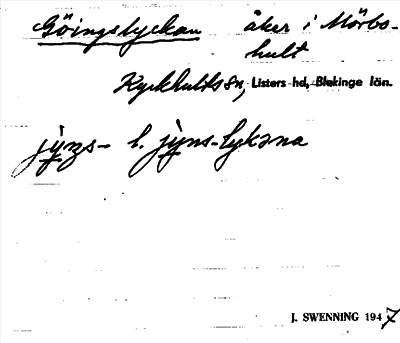 Göingslyckan åker i Mörbo-
hult
Kyrkhults sn, Listers hd, Blekinge län.
l.
J. SWENNING 1947